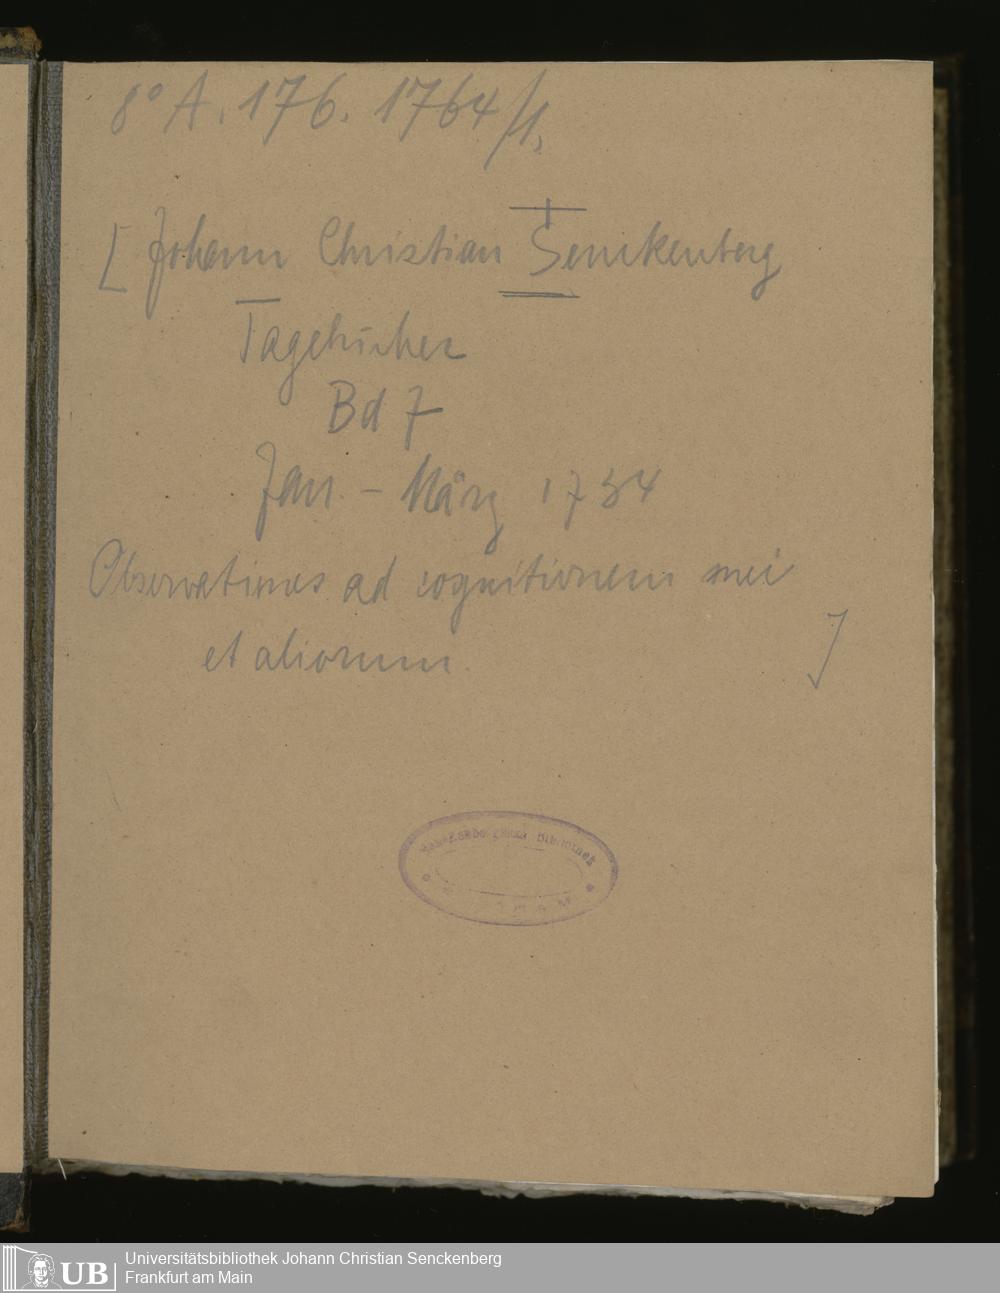 8° A. 176. 1764/1.
[Johann Christian Senckenberg
Tagebücher
Bd 7
Jan. - März 1734
Observationes ad cognitionem mei
et aliorum. ]
Bibliothek
UB
Universitätsbibliothek Johann Christian Senckenberg
Frankfurt am Main